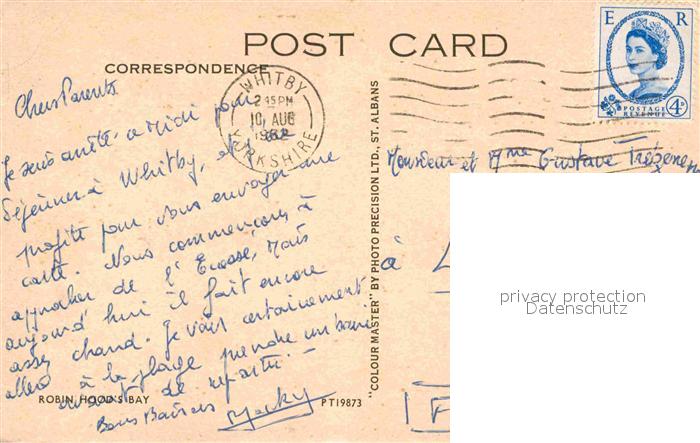 POST CARD
CORRESPONDENCE
WHITBY
2 45 PM
10 AUG
1962
YORKSHIRE
E R
POSTAGE
REVENUE
4D
Chers Parents
Je suis arrêté à midi pour
déjeuner à Whitby, et
profite pour vous envoyer une
carte. Nous commençons à
approcher de l'Ecosse, Mais
aujourd'hui il fait encore
assez chaud. Je vais certainement
aller à la plage prendre un bain
avant de repartir. —
Bons Baisers Jacky
ROBIN HOOD'S BAY
PT19873
"COLOUR MASTER" BY PHOTO PRECISION LTD., ST. ALBANS
Monsieur et Mme Gustave
à
privacy protection
Datenschutz